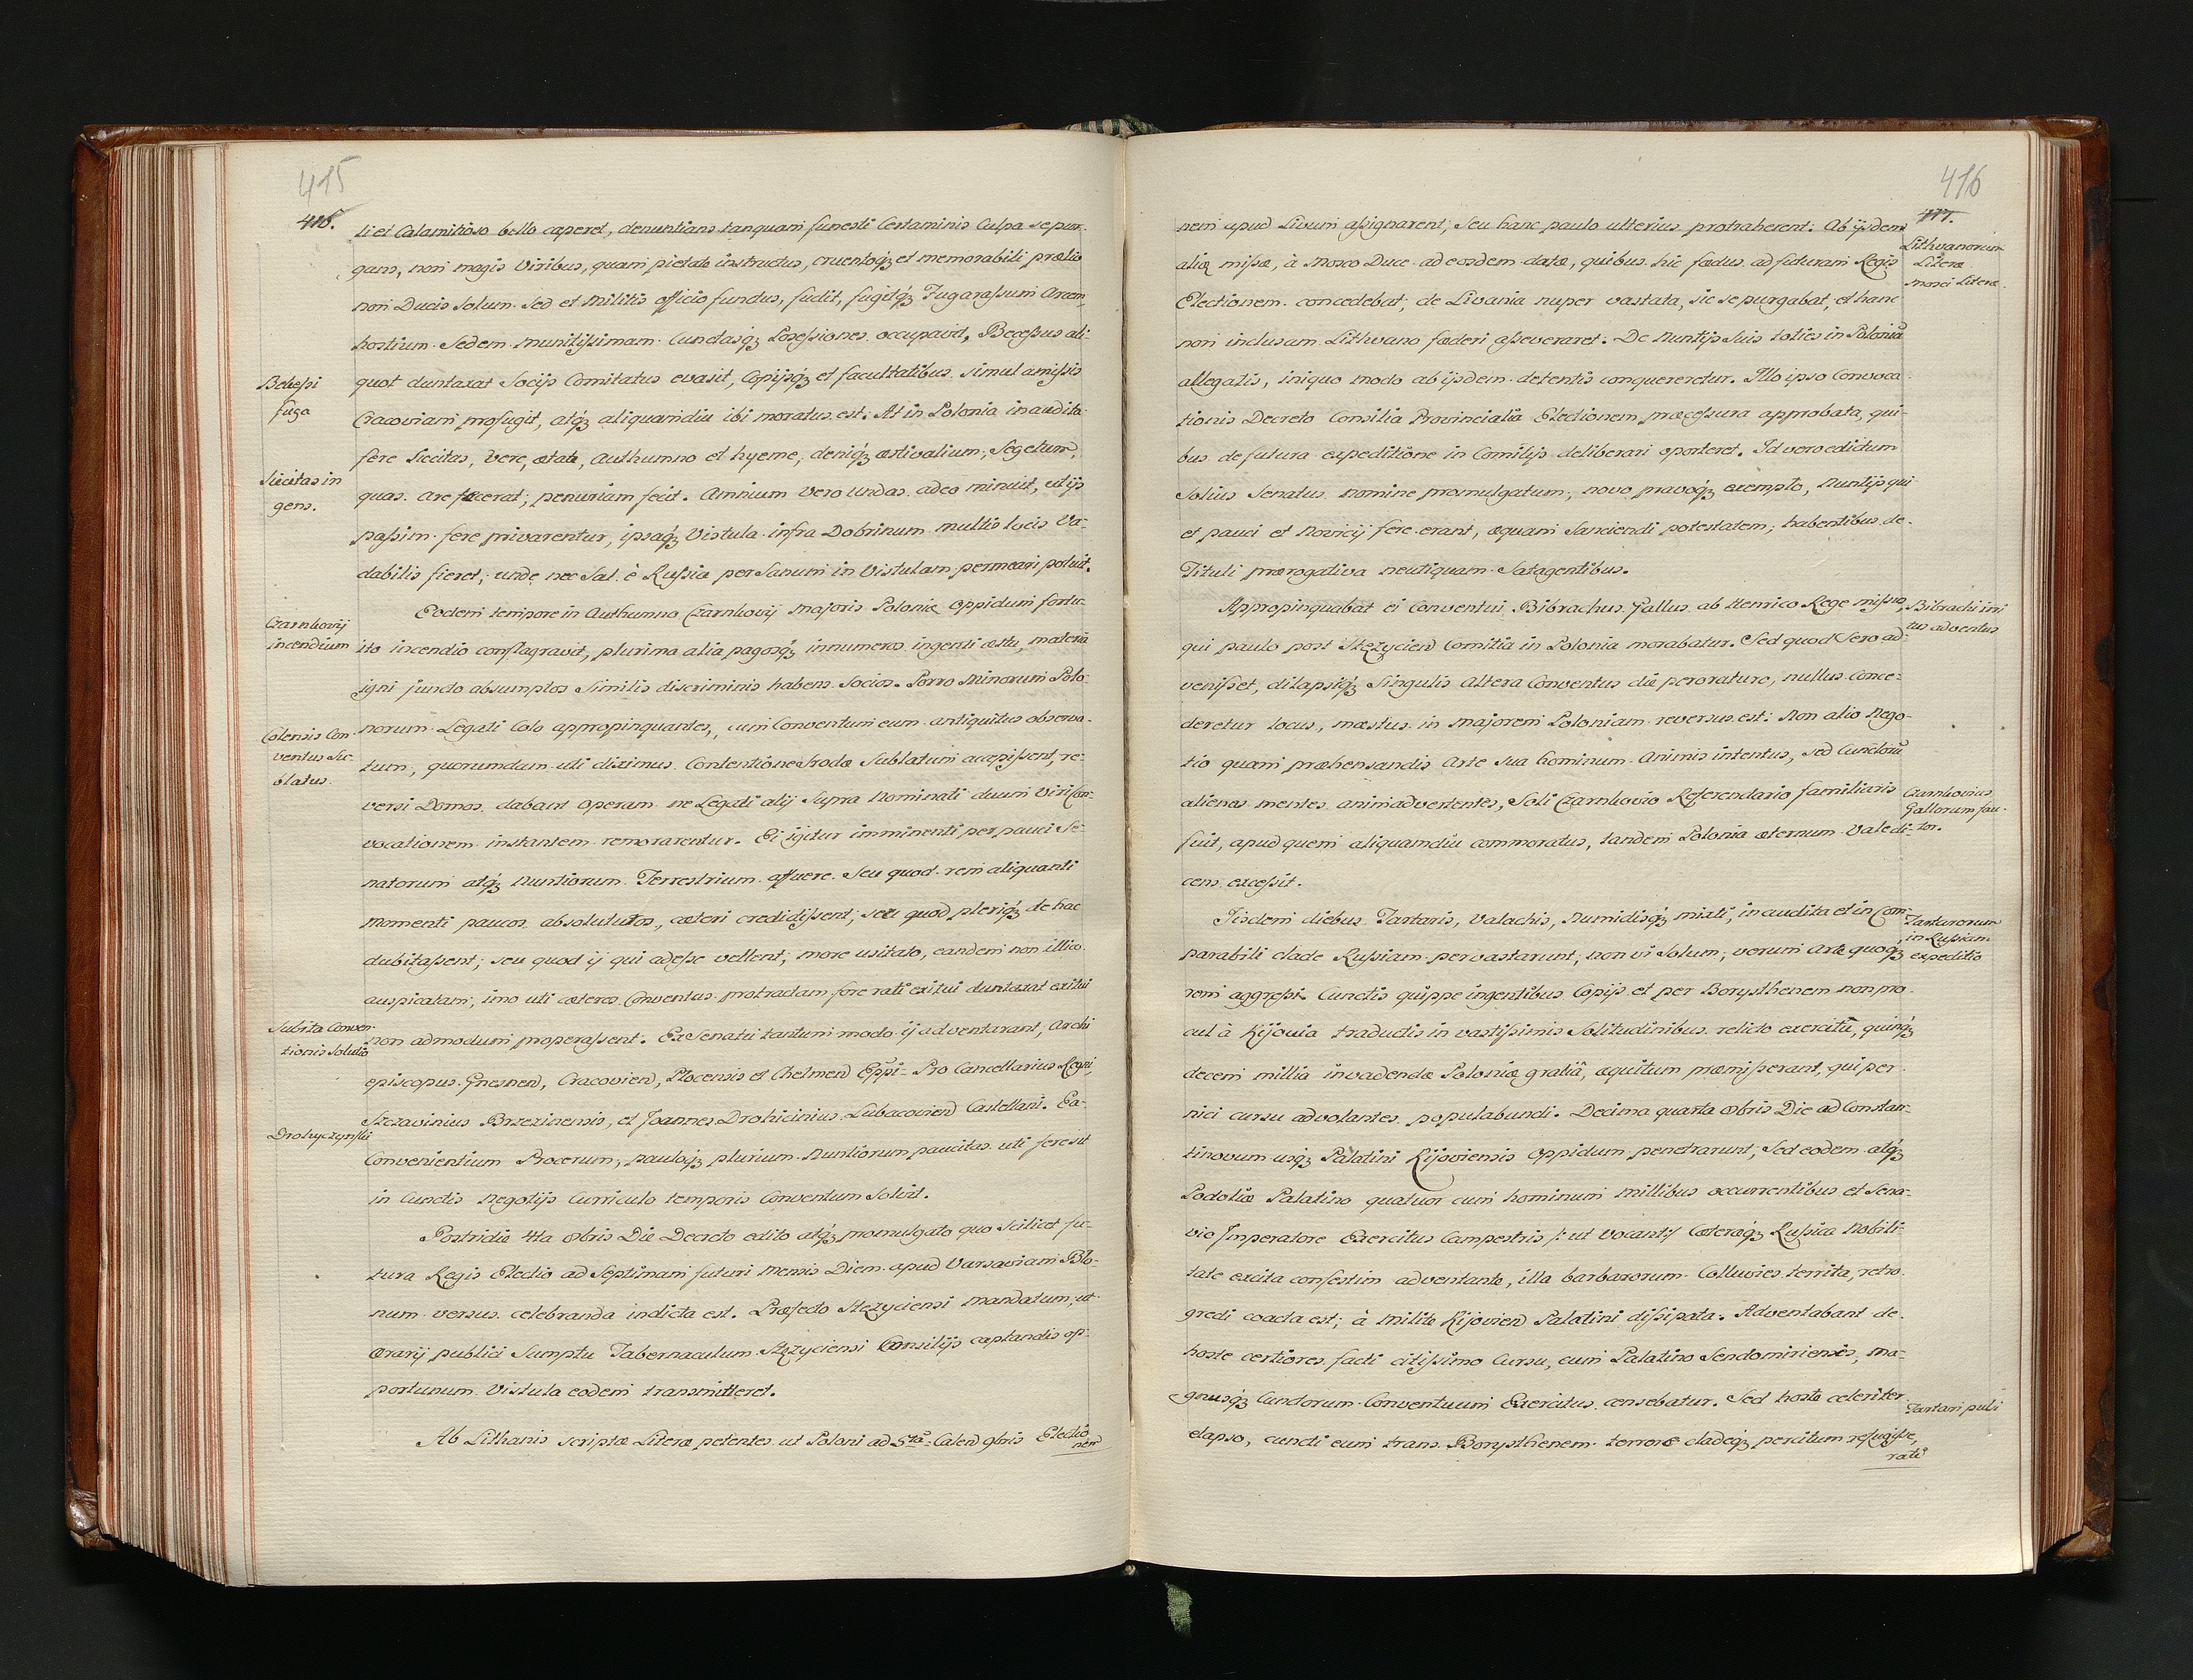 415
416.
ti et Calamitoso bello caperet, denuntians tanquam funesti Certaminis Culpa se pur-
gans, non magis Viribus, quam pietate instructus, cruentoq₃ et memorabili prælio
non Ducis Solum Sed et Militis officio fundus, fudit, fugitq₃ Fugarassum Arcem
hostium Sedem munitißimam Cunctasq₃ Poseßiones occupavit, Beceßus ali-
quot duntaxat Socijs Comitatus evasit, Copijsq₃ et facultatibus simul amißis
Cracoviam profugit, atq₃ aliquamdiu ibi moratus est. At in Polonia inaudita
fere Siccitas, Vere, ætate, Authumno et hyeme, deniq₃ æstivalium, Segetum,
quas arefecerat; penuriam fecit. Amnium vero undas adeo minuit, ut ijs
paßim fere privarentur, ipsaq₃ Vistula infra Dobrinum multis locis Va-
dabilis fieret; unde nec Sal è Rußia per Sanum in Vistulam permeari potuit.
Bekeßi
fuga
Siccitas in
gens.
Eodem tempore in Authumno Czarnkovij Majoris Poloniæ oppidum fortu-
ito incendio conflagravit, plurima alia pagosq₃ innumeros ingenti æstu, materia
igni fundo absumptos Similis discriminis habens Socios. Porro Minorum Polo-
norum Legati Colo appropinquantes, cum Conventum eum antiquitus observa-
tum, quorumdam uti diximus Contentione Srodæ Sublatum accepißent, re-
versi Domos dabant operam ne Legati alij Supra Nominati duum Viri Con-
vocationem instantem remorarentur. Ei igitur imminenti per pauci Se-
natorum atq₃ Nuntiorum Terrestrium affuere. Seu quod rem aliquanti
Momenti paucos absolututos, cæteri credidißent; seu quod pleriq₃ de hac
dubitaßent; seu quod ij qui adeße vellent; more usitato, eandem non illico
auspicatam, imo uti cæteros Conventus protractam fore rati exitui duntaxat exitui
non admodum properaßent. Ex Senatu tantum modo ij adventarant, Archi
episcopus Gnesnen, Cracovien, Plocensis et Chelmen Eppi- Pro Cancellarius Regni,
Sieravinius Brzezinensis, et Joannes Drohicinius Lubacovien Castellani. Ea
Convenientium Procerum, pauloq₃ plurium Nuntiorum paucitas uti fere sit
in Cunctis Negotijs Curriculo temporis Conventum Solvit.
Czarnkovij
incendium
Colensis Con-
ventus Su-
blatus.
Subita Conven-
tionis Solutio
Drohyczynski
Postridie 4ta 8bris Die Decreto edito atq₃ promulgato quo Scilicet fu-
tura Regis Electio ad Septimam futuri Mensis Diem apud Varsaviam Blo-
num versus celebranda indicta est. Præfecto Stezyciensi mandatum, ut
Ærarij publici Sumptu Tabernaculum Stezyciensi Consilijs captandis op-
portunum Vistula eodem transmitteret.
Ab Lithanis scriptæ Literæ petentes ut Poloni ad 5tã Calend 9bris Electio
nem
416
417.
nem apud Livum aßignarent; Seu hanc paulo ulterius protraherent. Ab ijsdem
aliæ mißæ, à Mosco Duce ad eosdem datæ, quibus hic fœdus ad futuram Regis
Electionem concedebat, de Livania nuper vastata, sic se purgabat, et hanc
non inclusam Lithvano fœderi aßeveraret. De Nuntijs Suis toties in Poloniã
allegatis, iniquo modo ab ijsdem detentis conquereretur. Illo ipso Convoca-
tionis Decreto Consilia Provincialia Electionem præceßura approbata, qui-
bus de futura expeditione in Comitijs deliberari oporteret. Id vero edictum
Solius Senatus nomine promulgatum, novo pravoq₃ exemplo, Nuntijs qui
et pauci et Novicij fere erant, æquam Sanciendi potestatem, habentibus de
Tituli prærogativa neutiquam Satagentibus.
Lithvanorum
Literæ
Mosci Literæ.
Appropinquabat ei Conventui Bibrachus Gallus ab Henrico Rege mißus,
qui paulo post Stezycien Comitia in Polonia morabatur. Sed quod Sero ad-
venißet, dilapsisq₃ Singulis altera Conventus die peroraturo, nullus conce-
deretur locus, mæstus in Majorem Poloniam reversus est: Non alio Nego-
tio quam præhensandis Arte Sua hominum Animis intentus, sed Cunctorũ
alienas mentes animadvertentes, Soli Czarnkovio Referendario familiaris
fuit, apud quem aliquamdiu commoratus, tandem Polonia æternum Vale di-
cens exceßit.
Bibrachi irri
tus adventus
Czarnkovius
Gallorum fau-
tor.
Iisdem diebus Tartaris, Valachis, Numidisq₃ mixti, inaudita et in Com-
parabili clade Rußiam pervastarunt, non vi Solum, verum Arte quoq₃
rem aggreßi. Cunctis quippe ingentibus Copijs et per Borysthenem non pro-
cul à Kijovia traductis in vastißimis Solitudinibus relicto exercitũ, quinq₃
decem millia invadendæ Poloniæ gratiâ, æquitum præmiserant, qui per-
nici cursu advolantes populabundi. Decima quarta 8bris Die ad Constan-
tinovum usq₃ Palatini Kijoviensis oppidum penetrarunt, Sed eodem atq₃
Podoliæ Palatino quatuor cum hominum millibus occurrentibus et Sena-
vio Imperatore Exercitus Campestris /: ut vocant :/ Cæteraq₃ Rußica Nobili-
tate excita confestim adventante, illa barbarorum Colluvies territa, retro
gredi coacta est; à Milite Kijovien Palatini dißipata. Adventabant de
hoste certiores facti citißimo Cursu, cum Palatino Sendomiriensis, ma-
gnusq₃ Cunctorum Conventuum Exercitus censebatur. Sed hoste celeriter
elapso, cuncti eum trans Borysthenem terrore cladeq₃ percitum refugiße,
rati
Tartarorum
in Rußiam
expeditio
Tartari pulsi